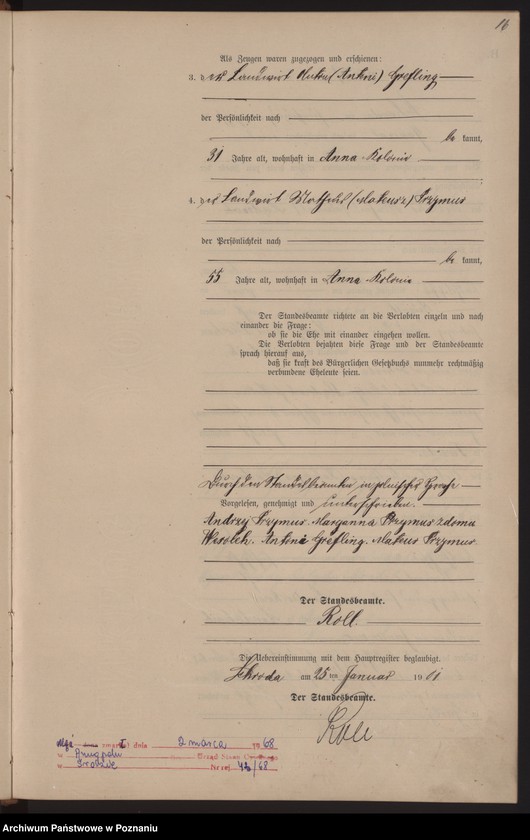 16
Als Zeugen waren zugezogen und erschienen:
3. der Landwirt Anton (Antoni) Grefling
der Persönlichkeit nach
be kannt,
31 Jahre alt, wohnhaft in Anna Kolonie
4. der Landwirt Mathias (Mateusz) Przymus
der Persönlichkeit nach
be kannt,
55 Jahre alt, wohnhaft in Anna Kolonie
Der Standesbeamte richtete an die Verlobten einzeln und nach
einander die Frage:
ob sie die Ehe mit einander eingehen wollen.
Die Verlobten bejahten diese Frage und der Standesbeamte
sprach hierauf aus,
daß sie kraft des Bürgerlichen Gesetzbuchs nunmehr rechtmäßig
verbundene Eheleute seien.
Durch den Standesbeamten in polnischer Sprache
Vorgelesen, genehmigt und unterschrieben.
Andrzy Przymus. Maryanna Przymus zdomu
Antoni Grefling. Mateus Przymus.
Der Standesbeamte.
Roll.
Die Uebereinstimmung mit dem Hauptregister beglaubigt.
Schroda am 25 ten Januar 1901
Der Standesbeamte.
Roll
dnia 2 marca 1968
w
w Środzie Nr rej 43/68
Archiwum Państwowe w Poznaniu